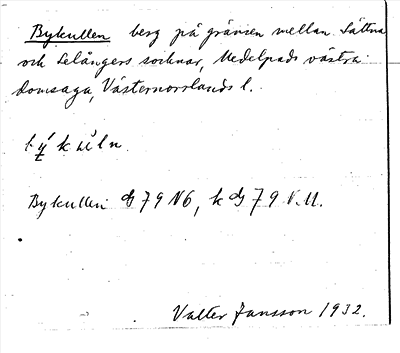 Bykullen berg på gränsen mellan Sättna
och Selångers socknar, Medelpads västra
domsaga, Västernorrlands l.
Bykullen dj 79 NÖ, k dj 79 V.M.
Valter Jansson 1932.